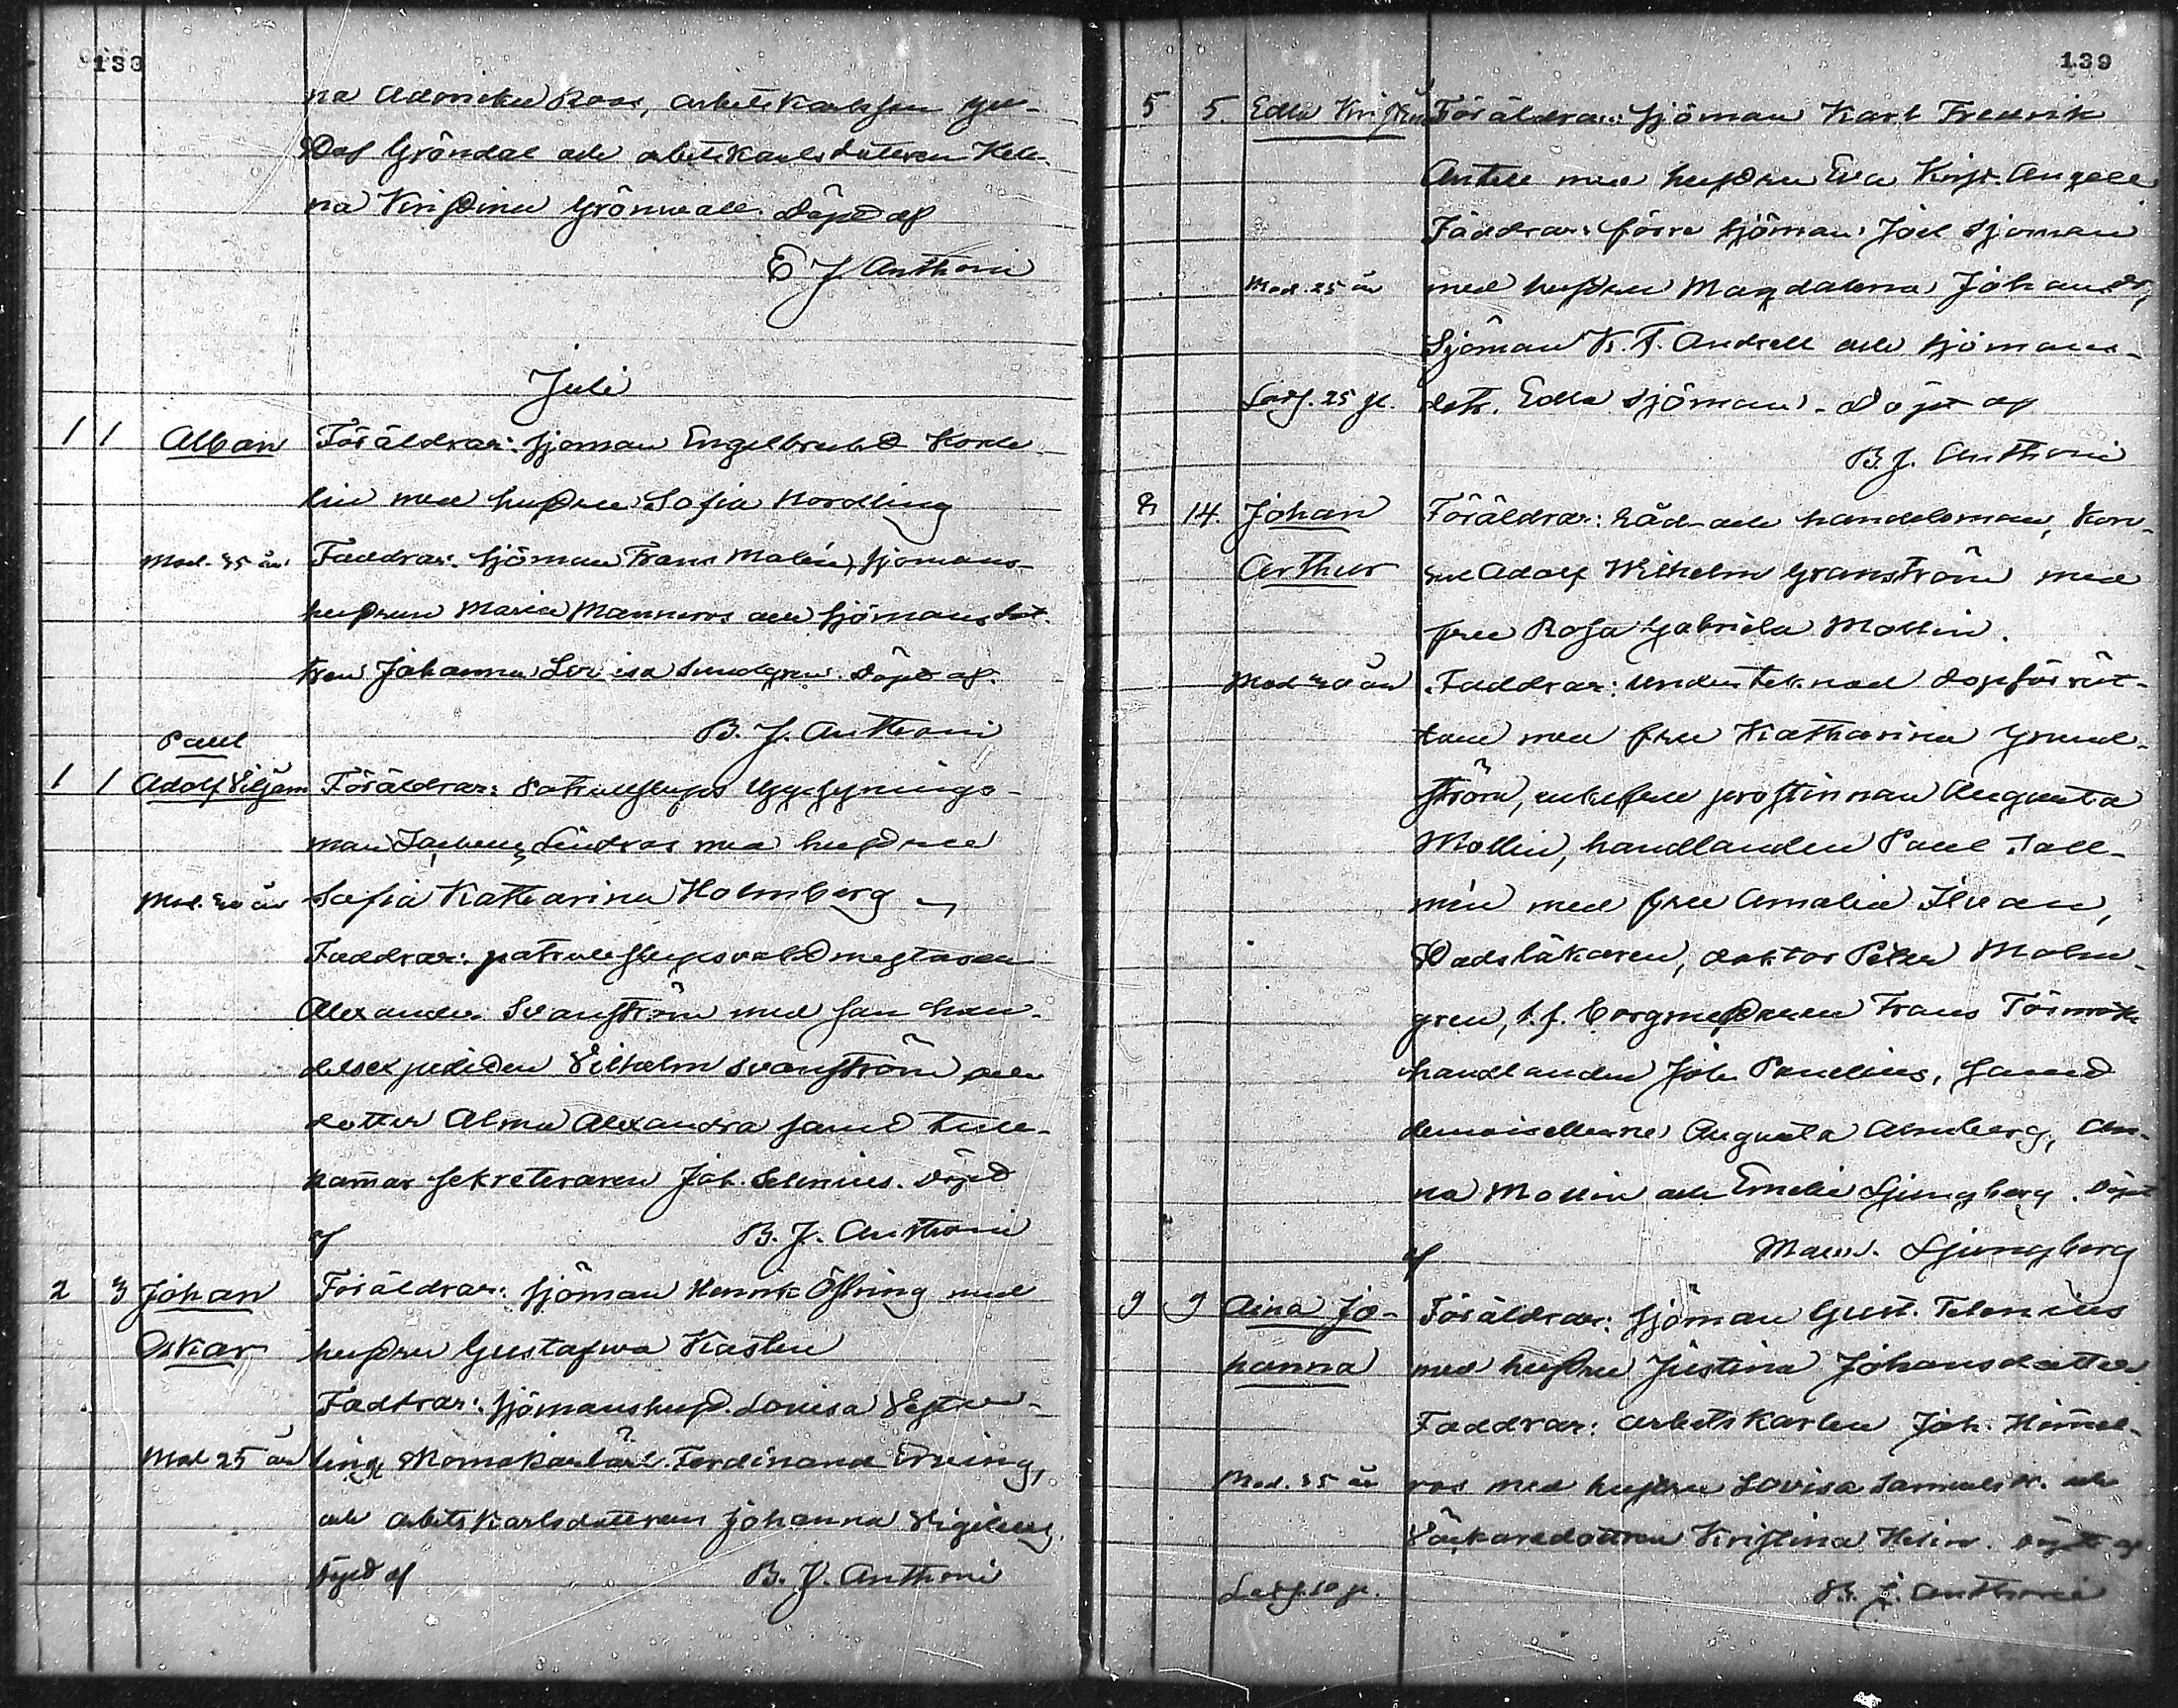 133
na Roos, arbetskarlsson Gu-
staf Gröndal och arbetskarlsdottren Hele-
na Kristina Grönvall. Döpt af
E J. Anthoni
Juli
1 1 Alban Föräldrar: sjöman Engelbrecht Korde-
lin med hustru Sofia Nordling
Mod. 35 år Faddrar: sjöman Frans Malin, sjömans-
hustrun Maria Manneros och sjömansdot-
tren Johanna Lovisa Sundgren. Döpt af.
B. J. Anthoni
Paul
1 1 Adolf Viljam Föräldrar: Patrullslups Uppsynings-
man Lindros med hustru
Mod. 30 år Sofia Katharina Holmberg
Faddrar: patrullslups
Alexander Svanström med son han-
delsexpediten Vilhelm Svanström och
dotter Alma Alexandra samt tull-
kammar sekreteraren Joh. Selenius. Döpt
af B. J. Anthoni
2 3 Johan Föräldrar: sjöman Henrik Östring med
Oskar hustru Gustafva Kastén
Faddrar: sjömanshust. Lovisa
Mod 25 år ling, Ferdinand
och arbetskarlsdottren Johanna
Döpt af B. J. Anthoni
139
5 5. Edla Kristina Föräldrar: sjöman Karl Fredrik
Antell med hustru Eva Krist. Angell
Faddrar: förre sjöman Joel Sjöman
Mod. 25 år med hustru Magdalena Johansdr,
Sjöman K. F. Andsell och sjömans-
Lösg. 25 p. dotr. Edla Sjöman. Döpt af
B. J. Anthoni
8 14. Johan Föräldrar: Råd- och handelsman, Kon-
Arthur sul Adolf Wilhelm Granström med
fru Rosa Gabriela Mollin.
Mod 30 år Faddrar: Undertecknad dopförrät-
tare med fru Katharina Grund-
ström, enkefru prostinnan Augusta
Mollin, handlanden Paul Tall-
med fru Amalia
Stadsläkaren, doktor Peter Malm-
gren, t.f. borgmästaren Frans Törnroth
handlanden Joh. Paulins, samt
demoisellerne Augusta Almberg, An-
na Mollin och Emelie Ljungberg. Döpt
af Maur. Ljungberg
9 9 Aina Jo- Föräldrar: sjöman Gust. Telenius
hanna med hustru Justina Johansdotter.
Faddrar: arbetskarlen Joh. Himel-
Mod. 35 år ros med hustru Lovisa och
dottren Kristina Helin. Döpt af
Lösg. 10 p. B. J. Anthoni